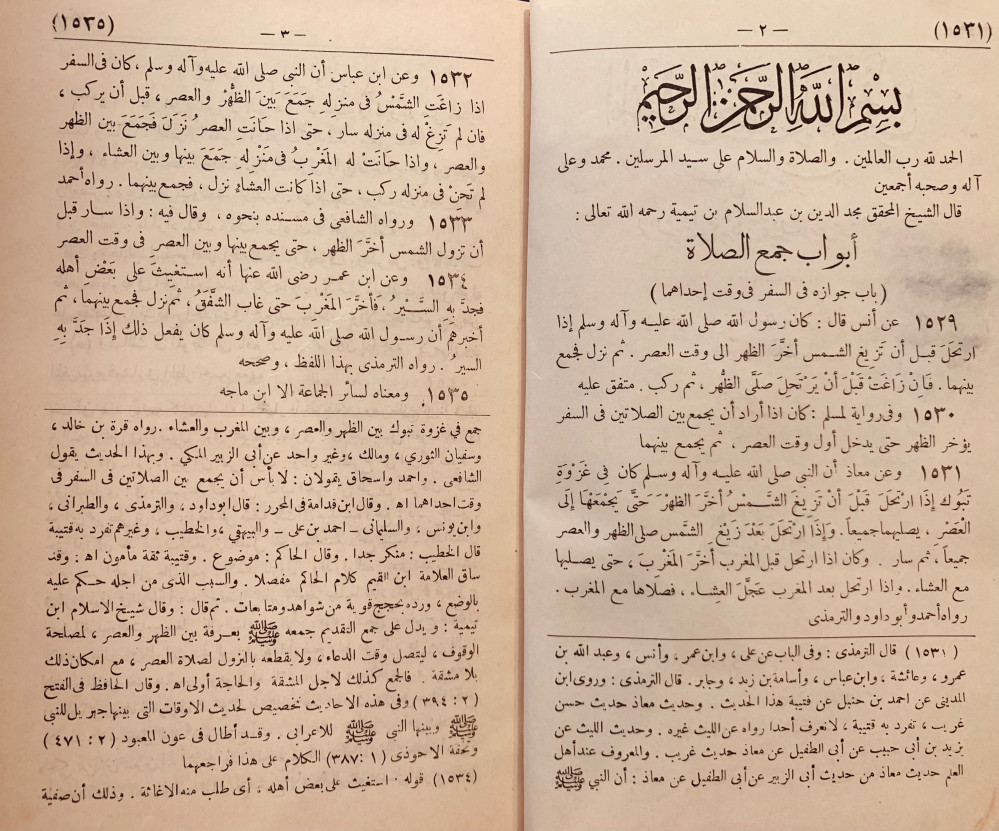 (١٥٣١)
— ٢ —
بسم الله الرحمن الرحيم
الحمد لله رب العالمين . والصلاة والسلام على سيد المرسلين . محمد وعلى
آله وصحبه أجمعين
قال الشيخ المحقق مجد الدين بن عبدالسلام بن تيمية رحمه الله تعالى :
أبواب جمع الصلاة
( باب جوازه فى السفر فى وقت إحداهما )
١٥٢٩ عن أنس قال : كان رسول الله صلى الله عليه وآله وسلم إذا
ارتحَلَ قبل أن تَزِيغ الشمس أخَّرَ الظهر الى وقت العصر . ثم نزل فجمع
بينهما . فَإن زَاغَتْ قَبْلَ أَنْ يَرْتَحِلَ صَلَّى الظُّهر ، ثم ركب . متفق عليه
١٥٣٠ وفى رواية لمسلم : كان اذا أراد أن يجمع بين الصلاتين فى السفر
يؤخر الظهر حتى يدخل أول وقت العصر ، ثم يجمع بينهما
١٥٣١ وعن معاذ أن النبى صلى الله عليه وآله وسلم كان فِي غَزْوَةِ
تَبُوك إذَا ارْتَحَلَ قَبْلَ أنْ تَزِيغَ الشَّمْسُ أخَّرَ الظهْرَ حَتَّى يَجْمَعَهَا إلَى
الْعَصْر ، يصليهما جميعاً . وَإذَا ارْتَحَلَ بَعْدَ زَيْغ الشَّمس صلى الظهر والعصر
جميعاً ، ثم سار . وكان اذا ارتحل قبل المغرب أخَّرَ المَغْرِبَ ، حتى يصليها
مع العشاء . واذا ارتحل بعد المغرب عَجَّلَ العِشاء ، فصلاها مع المغرب .
رواه أحمد وأبو داود والترمذى
( ١٥٣١ ) قال الترمذى : وفى الباب عن على ، وابن عمر ، وأنس ، وعبد الله بن
عمرو ، وعائشة ، وابن عباس ، وأسامة بن زيد ، وجابر . قال الترمذى : وروى ابن
المدينى عن احمد بن حنبل عن قتيبة هذا الحديث . وحديث معاذ حديث حسن
غريب ، تفرد به قتيبة ، لانعرف أحدا رواه عن الليث غيره . وحديث الليث عن
يزيد بن أبى حبيب عن أبى الطفيل عن معاذ حديث غريب . والمعروف عند أهل
العلم حديث معاذ من حديث أبى الزبير عن أبى الطفيل عن معاذ : أن النبى ﷺ
(١٥٣٥)
— ٣ —
١٥٣٢ وعن ابن عباس أن النبى صلى الله عليه وآله وسلم ، كان فى السفر
اذا زاغَتِ الشَّمْسُ فى منزله جَمَعَ بَينَ الظُّهْرُ والعصر ، قبل أن يركب ،
فان لم تَزِغْ له فى منزله سار ، حتى اذا حَانَتِ العصرُ نَزَلَ فَجَمَعَ بين الظهر
والعصر ، واذا حَانَتْ له المَغْرِبُ فى مَنْزِلِهِ جَمَعَ بينها وبين العشاء ، وإذا
لم تَحِنْ فى منزله ركب ، حتى اذا كانت العشاءُ نزل ، فجمع بينهما . رواه أحمد
١٥٣٣ ورواه الشافعى فى مسنده بنحوه ، وقال فيه : واذا سار قبل
أن تزول الشمس أخَّرَ الظهر ، حتى يجمع بينها وبين العصر فى وقت العصر
١٥٣٤ وعن ابن عمر رضى الله عنهما أنه استغيثَ على بَعْضِ أهله
فجدَّ بِهِ السَّيْرُ ، فَأخَّرَ المَغْرِبَ حتى غاب الشَّفَقُ ، ثم نزل فجمع بينهما ، ثم
أخبرهم أن رسول الله صلى الله عليه وآله وسلم كان يفعل ذلك إذَا جَدَّ بِهِ
السيرُ . رواه الترمذى بهذا اللفظ ، وصححه
١٥٣٥ ومعناه لسائر الجماعة الا ابن ماجه
جمع في غزوة تبوك بين الظهر والعصر ، وبين المغرب والعشاء . رواه قرة بن خالد ،
وسفيان الثورى ، ومالك ، وغير واحد عن أبى الزبير المكى . وبهذا الحديث يقول
الشافعى . واحمد واسحاق يقولان : لا بأس أن يجمع بين الصلاتين فى السفر فى
وقت احداهما اه . وقال ابن قدامة فى المحرر : قال ابوداود ، والترمذى ، والطبرانى ،
وابن يونس ، والسليمانى ـ احمد بن على ـ والبيهقي ، والخطيب ، وغيرهم تفرد به قتيبة
قال الخطيب : منكر جدا . وقال الحاكم : موضوع . وقتيبة ثقة مأمون اه : وقد
ساق العلامة ابن القيم كلام الحاكم مفصلا . والسبب الذى من اجله حكم عليه
بالوضع ، ورده بحجج قوية من شواهد ومتابعات . ثم قال : وقال شيخ الاسلام ابن
تيمية : ويدل على جمع التقديم جمعه ﷺ بعرفة بين الظهر والعصر ، لمصلحة
الوقوف ، ليتصل وقت الدعاء ، ولا يقطعه بالنزول لصلاة العصر ، مع امكان ذلك
بلا مشقة . فالجمع كذلك لاجل المشقة والحاجة أولى اه . وقال الحافظ فى الفتح
(٢ : ٣٩٤) وفى هذه الاحاديث تخصيص لحديث الاوقات التى بينها جبريل للنبى
ﷺ وبينها النبى ﷺ للاعرابى . وقد أطال فى عون المعبود (٢ : ٤٧١)
وتحفة الاحوذى (١ : ٣٨٧) الكلام على هذا فراجعهما
(١٥٣٤) قوله : استغيث على بعض أهله ، أى طلب منه الاغاثة . وذلك أن صفية